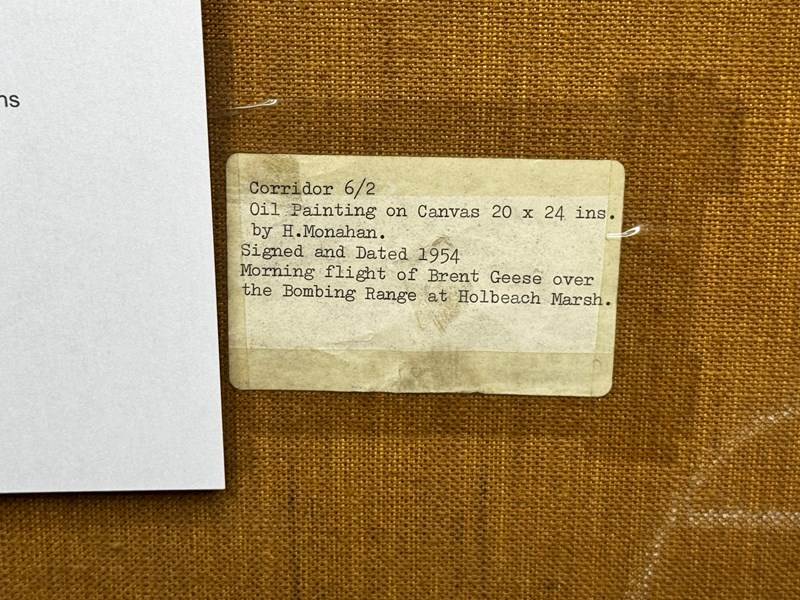 ns
Corridor 6/2
Oil Painting on Canvas 20 x 24 ins.
by H.Monahan.
Signed and Dated 1954
Morning flight of Brent Geese over
the Bombing Range at Holbeach Marsh.